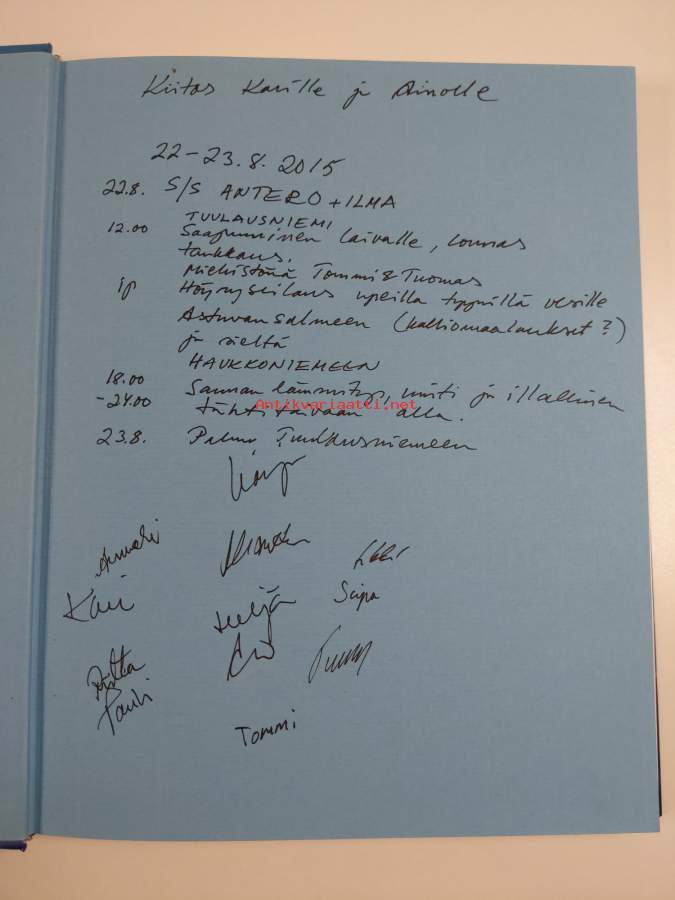 Kiitos Karille ja Ainolle
22-23.8. 2015
22.8. S/S ANTERO + ILMA
TUULAUSNIEMI
12.00 Saapuminen laivalle, lounas
tankkaus.
Miehistönä Tommi & Tuomas
ip Höyryseilaus upeilla tyynillä vesille
Astuvansalmeen (kalliomaalaukset?)
ja sieltä
HAUKKONIEMEEN
18.00 Saunan lämmitys, uinti ja illallinen
-24.00 tähtitaivaan alla.
Antikvariaatti.net
23.8. Paluu Tuulausniemeen
Anneli
Kari
Seija Seipa
Pauli
Tommi